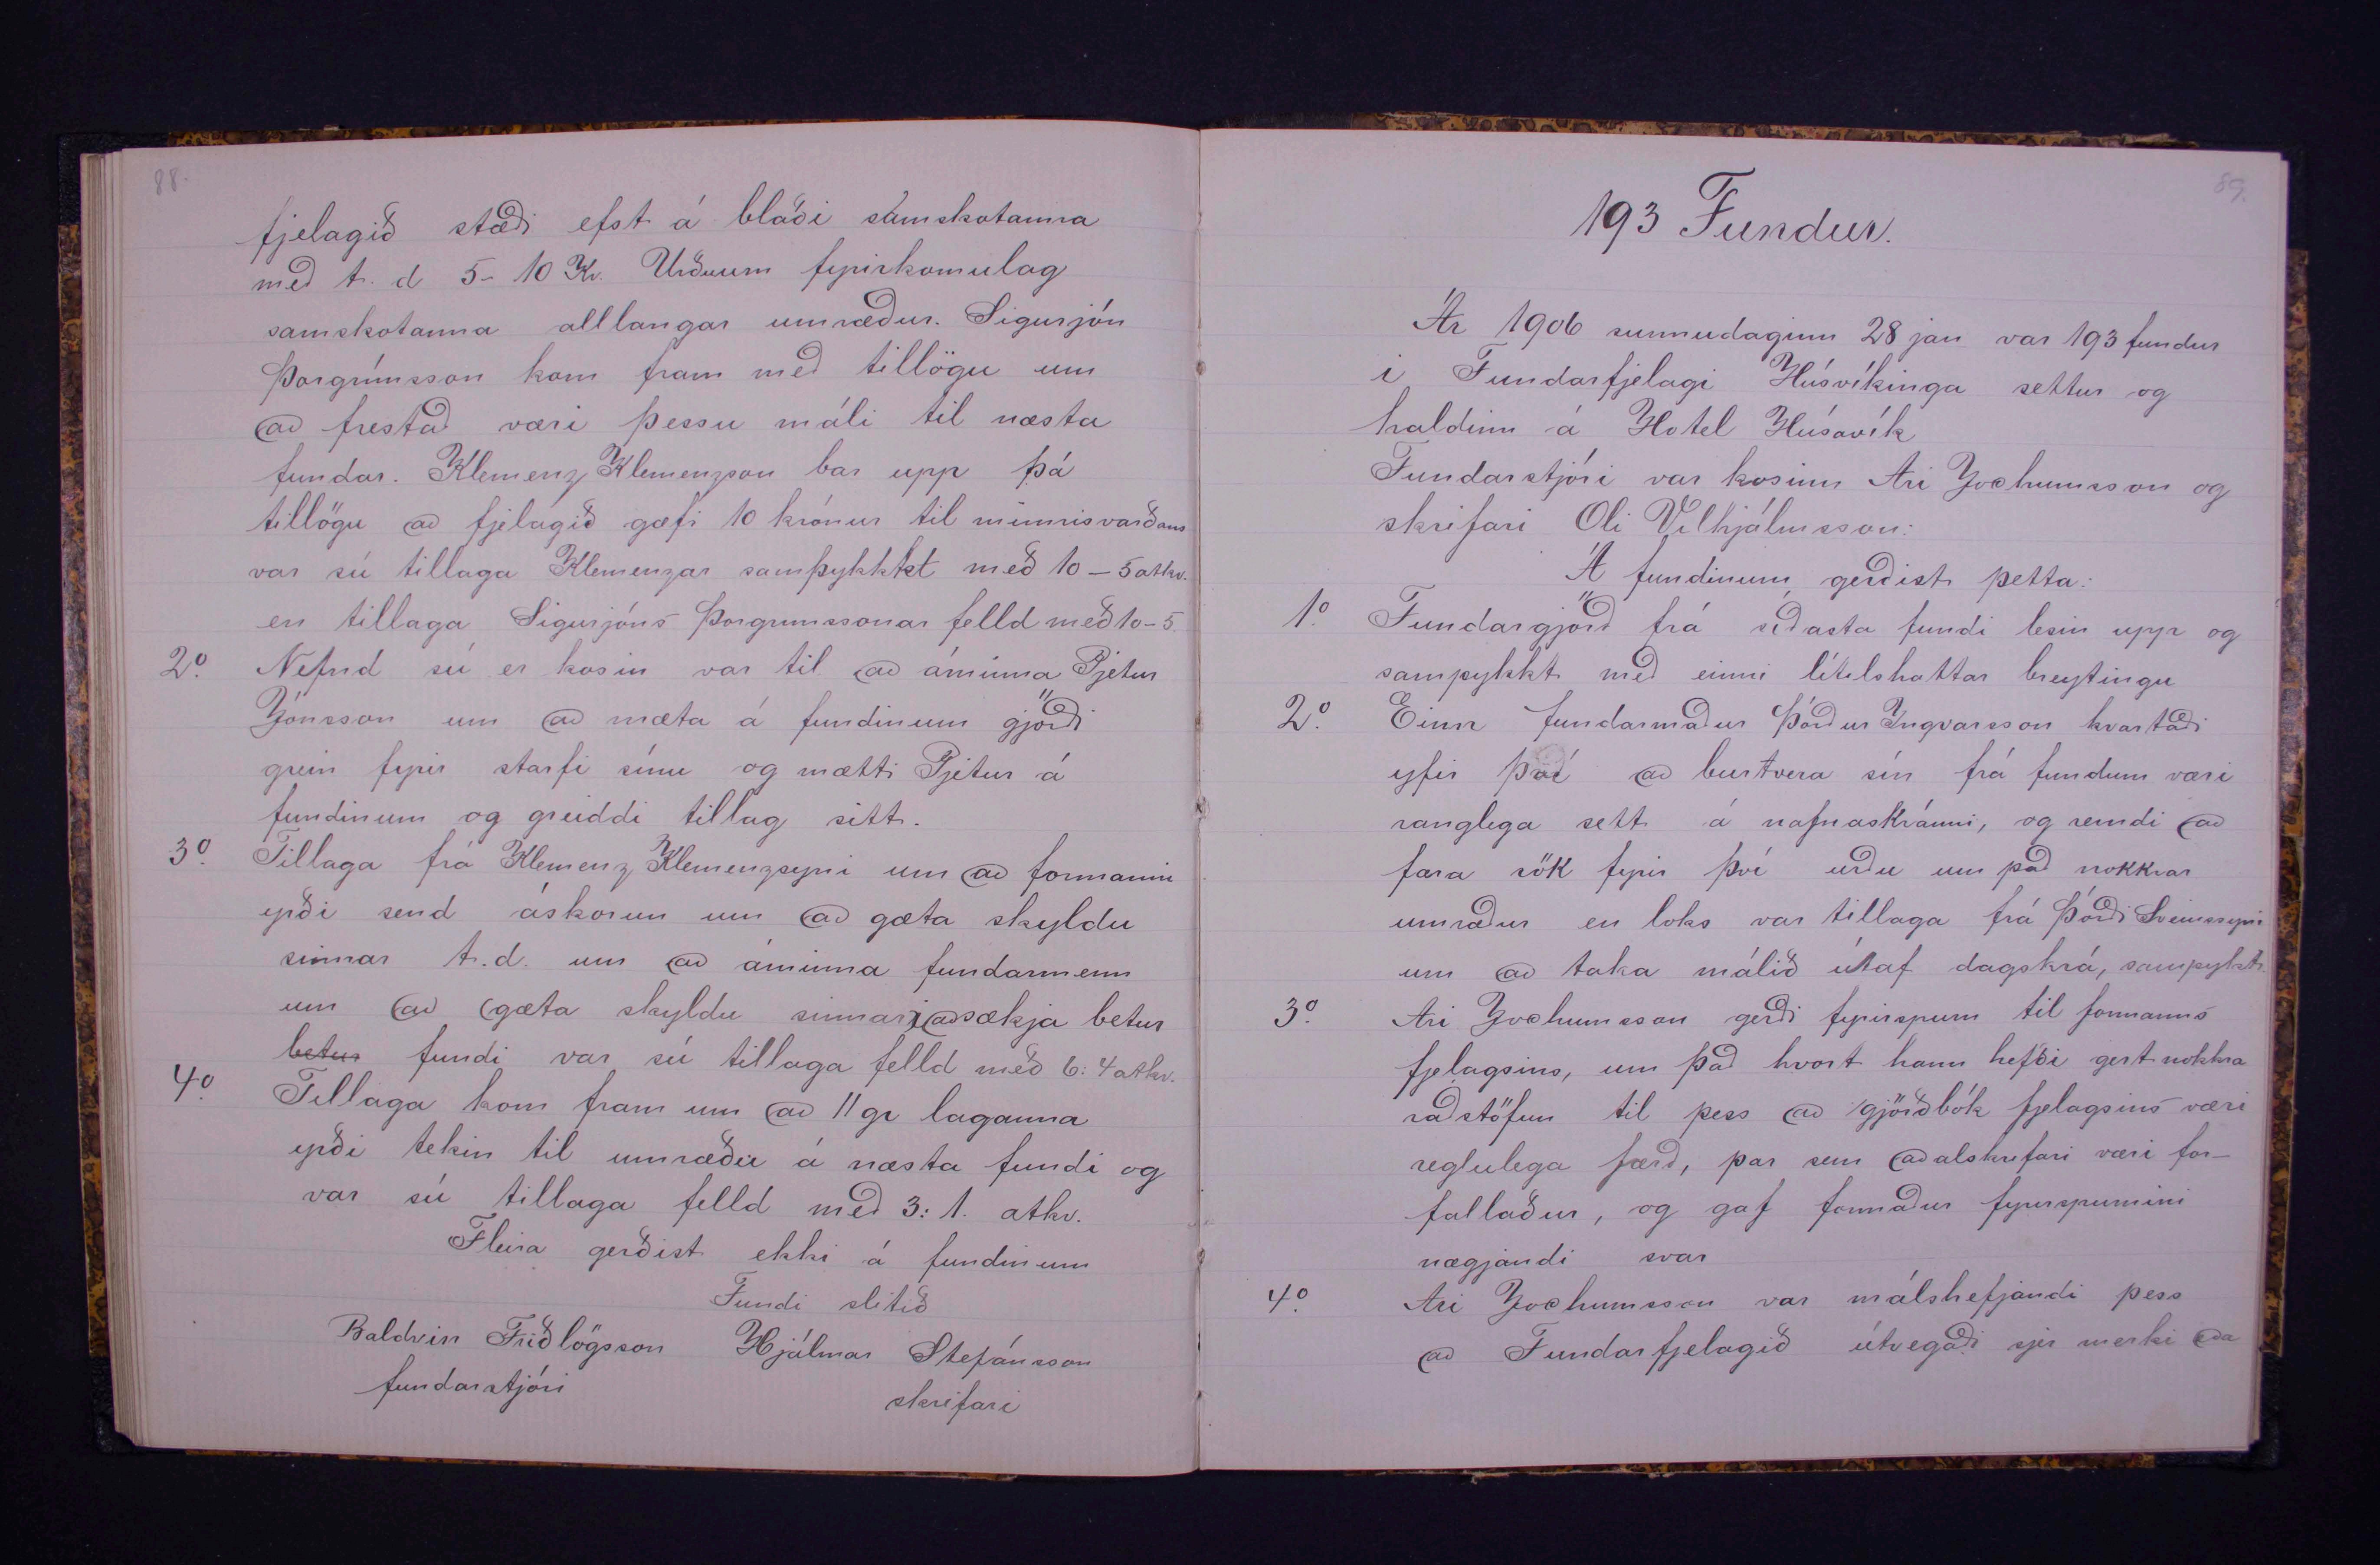 88.
fjelagið stæði efst á blaði samskotanna
með t. d 5-10 Kr. Urðuum fyrirkomulag
samskotanna alllangar umræður. Sigurjón
Þorgrímsson kom fram með tillögu um
að frestað væri þessu máli til næsta
fundar. Klemenz Klemenzson bar upp þá
tillögu að fjelagið gæfi 10 krónur til minnisvarðans
var sú tillaga Klemenzar samþykktkt með 10-5 atkv.
en tillaga Sigurjóns Þorgrimssonar felld með 10-5.
2º. Nefnd sú er kosin var til að áminna Pjetur
Jónsson um að mæta á fundinum gjörði
grein fyrir starfi sínu og mætti Pjetur á
fundinum og greiddi tillag sitt.
3º. Tillaga frá Klemenz Klemenzsyni um að formanni
yrði send áskorun um að gæta skyldu
sinnar t.d. um að áminna fundarmenn
um að gæta skyldu sinnar, að sækja betur
betur fundi var sú tillaga felld með 6:4 atkv.
4º. Tillaga kom fram um að 11 gr laganna
yrði tekin til umræðu á næsta fundi og
var sú tillaga felld með 3:1. atkv.
Fleira gerðist ekki á fundinum
Fundi slitið
Baldvin Friðlögsson Hjálmar Stefánsson
fundarstjóri skrifari
89.
193 Fundur.
Ár 1906 sunnudaginn 28 jan var 193 fundur
i Fundarfjelagi Húsvíkinga settur og
haldinn á Hotel Húsavík
Fundarstjóri var kosinn Ari Jochumsson og
skrifari Oli Vilhjálmsson:
Á fundinum gerðist þetta:
1º. Fundargjörð frá síðasta fundi lesin upp og
samþykkt með einni lítilsháttar breytingu
2º. Einn fundarmaður Þórður Ingvarsson kvartaði
yfir því að burtvera sín frá fundum væri
ranglega sett á nafnaskránni, og reindi að
færa rök fyrir því urðu um það nokkrar
umræður en loks var tillaga frá Þórði Sveinssyni
um að taka málið útaf dagskrá, samþykt.
3º. Ari Jochumsson gerði fyrirspurn til formanns
fjelagsins, um það hvort hann hefði gert nokkra
raðstöfun til þess að gjörðbók fjelagsins væri
reglulega færð, þar sem aðalskrifari væri for-
fallaður, og gaf formaður fyrirspurninni
nægjandi svar
4º. Ari Jochumsson var málshefjandi þess
að Fundarfjelagið útvegaði sjer merki eða